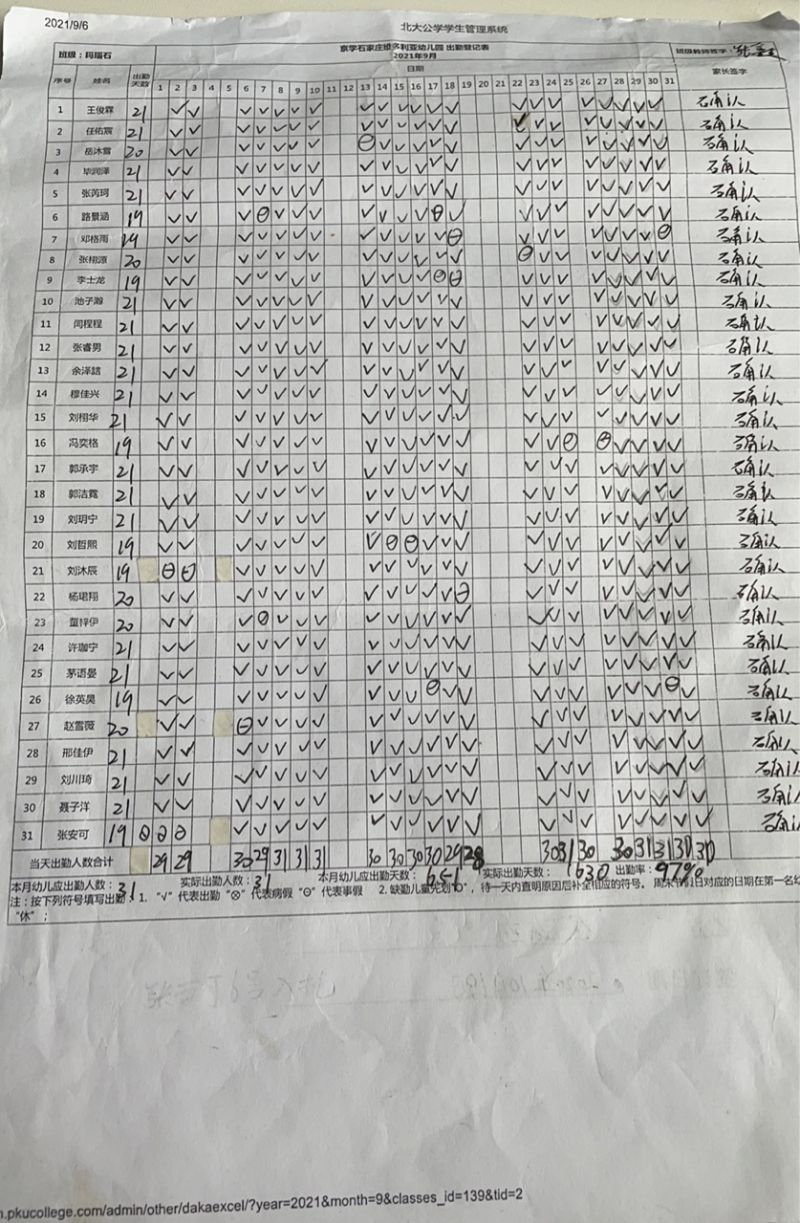 2021/9/6 北大公学学生管理系统
班级：玛瑙石 京学石家庄维多利亚幼儿园 出勤登记表 班级教师签字：
2021年9月
序号 姓名 出勤天数 日期 家长签字
1 2 3 4 5 6 7 8 9 10 11 12 13 14 15 16 17 18 19 20 21 22 23 24 25 26 27 28 29 30 31
1 王俊霖 21 √ √ √ √ √ √ √ √ √ √ √ √ √ √ √ √ √ √ √ √ √ 已确认
2 任佑宸 21 √ √ √ √ √ √ √ √ √ √ √ √ √ √ √ √ √ √ √ √ √ √ 已确认
3 岳沐雪 20 √ √ √ √ √ √ √ ⊖ √ √ √ √ √ √ √ √ √ √ √ √ √ 已确认
4 毕润泽 21 √ √ √ √ √ √ √ √ √ √ √ √ √ √ √ √ √ √ √ √ √ 已确认
5 张芮珂 21 √ √ √ √ √ √ √ √ √ √ √ √ √ √ √ √ √ √ √ √ √ 已确认
6 路景涵 19 √ √ √ ⊖ √ √ √ √ √ √ √ ⊖ √ √ √ √ √ √ √ √ √ 已确认
7 邓格雨 19 √ √ √ √ √ √ √ √ √ √ √ √ ⊖ √ √ √ √ √ √ √ ⊖ 已确认
8 张栩源 20 √ √ √ √ √ √ √ √ √ √ √ √ √ ⊖ √ √ √ √ √ √ √ 已确认
9 李士龙 19 √ √ √ √ √ √ √ √ √ √ √ ⊖ ⊖ √ √ √ √ √ √ √ √ 已确认
10 池子瀚 21 √ √ √ √ √ √ √ √ √ √ √ √ √ √ √ √ √ √ √ √ √ 已确认
11 闫程程 21 √ √ √ √ √ √ √ √ √ √ √ √ √ √ √ √ √ √ √ √ √ 已确认
12 张睿男 21 √ √ √ √ √ √ √ √ √ √ √ √ √ √ √ √ √ √ √ √ √ 已确认
13 余泽喆 21 √ √ √ √ √ √ √ √ √ √ √ √ √ √ √ √ √ √ √ √ √ 已确认
14 穆佳兴 21 √ √ √ √ √ √ √ √ √ √ √ √ √ √ √ √ √ √ √ √ √ 已确认
15 刘栩华 21 √ √ √ √ √ √ √ √ √ √ √ √ √ √ √ √ √ √ √ √ √ 已确认
16 冯奕格 19 √ √ √ √ √ √ √ √ √ √ √ √ √ √ √ ⊖ ⊖ √ √ √ √ 已确认
17 郭承宇 21 √ √ √ √ √ √ √ √ √ √ √ √ √ √ √ √ √ √ √ √ √ 已确认
18 郭洁霓 21 √ √ √ √ √ √ √ √ √ √ √ √ √ √ √ √ √ √ √ √ √ 已确认
19 刘玥宁 21 √ √ √ √ √ √ √ √ √ √ √ √ √ √ √ √ √ √ √ √ √ 已确认
20 刘哲熙 19 √ √ √ √ √ √ √ √ ⊖ ⊖ √ √ √ √ √ √ √ √ √ √ √ 已确认
21 刘沐辰 19 ⊖ ⊖ √ √ √ √ √ √ √ √ √ √ √ √ √ √ √ √ √ √ √ 已确认
22 杨珺翔 20 √ √ √ √ √ √ √ √ √ √ √ √ ⊖ √ √ √ √ √ √ √ √ 已确认
23 董梓伊 20 √ √ √ ⊖ √ √ √ √ √ √ √ √ √ √ √ √ √ √ √ √ √ 已确认
24 许珈宁 21 √ √ √ √ √ √ √ √ √ √ √ √ √ √ √ √ √ √ √ √ √ 已确认
25 茅语晏 21 √ √ √ √ √ √ √ √ √ √ √ √ √ √ √ √ √ √ √ √ √ 已确认
26 徐英昊 19 √ √ √ √ √ √ √ √ √ √ √ ⊖ √ √ √ √ √ √ √ √ ⊖ √ 已确认
27 赵雪薇 20 √ √ ⊖ √ √ √ √ √ √ √ √ √ √ √ √ √ √ √ √ √ √ 已确认
28 邢佳伊 21 √ √ √ √ √ √ √ √ √ √ √ √ √ √ √ √ √ √ √ √ √ 已确认
29 刘川琦 21 √ √ √ √ √ √ √ √ √ √ √ √ √ √ √ √ √ √ √ √ √ 已确认
30 聂子洋 21 √ √ √ √ √ √ √ √ √ √ √ √ √ √ √ √ √ √ √ √ √ 已确认
31 张安可 19 ⊖ ⊖ ⊖ √ √ √ √ √ √ √ √ √ √ √ √ √ √ √ √ √ √ √ 已确认
当天出勤人数合计 29 29 30 29 31 31 31 30 30 30 30 29 28 30 31 30 30 31 31 30 30
本月幼儿应出勤人数：31 实际出勤人数：31 本月幼儿应出勤天数：651 实际出勤天数：630 出勤率：97%
注：按下列符号填写出勤：1. “√”代表出勤 “⊗”代表病假 “⊖”代表事假 2. 缺勤儿童先划“O”，待一天内查明原因后补全相应的符号。 周末节假日对应的日期在第一名幼
“休”；
n.pkucollege.com/admin/other/dakaexcel/?year=2021&month=9&classes_id=139&tid=2